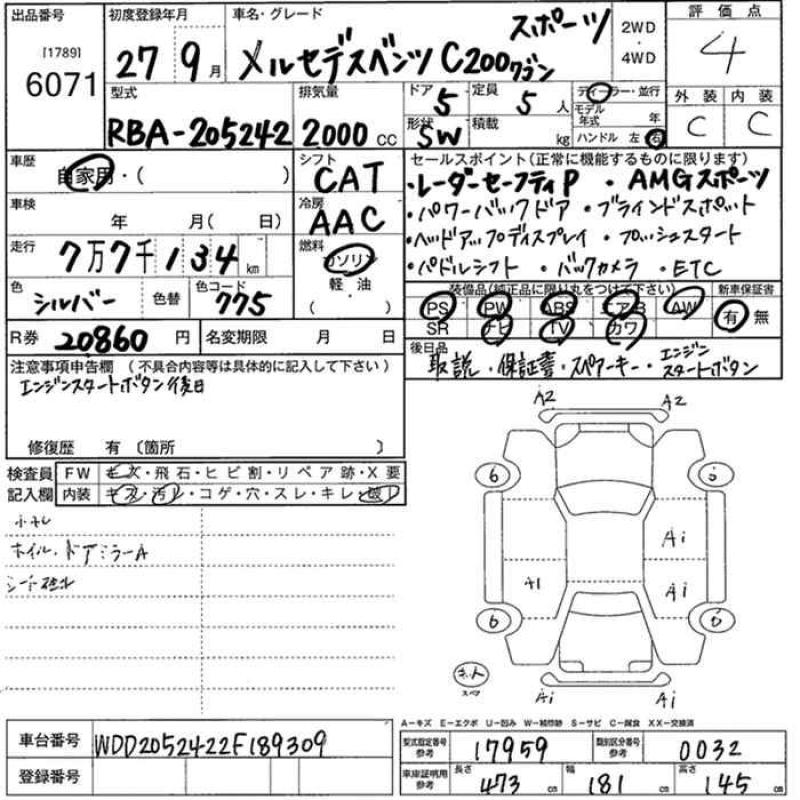 出品番号 初度登録年月 車名・グレード 評価点
[1789]
6071
27 9月 メルセデスベンツ C200 ワゴン スポーツ
2WD・4WD
4
型式 排気量 ドア 定員 ディーラー・並行
RBA-205242 2000 cc 5 5人 モデル年式 年
形状 積載 ハンドル 左 右
SW kg
外装 内装
C C
車歴 シフト セールスポイント(正常に機能するものに限ります)
自家用・( ) CAT
・レーダーセーフティP ・AMGスポーツ
車検 冷房
年 月( 日) AAC
・パワーバックドア ・ブラインドスポット
・ヘッドアップディスプレイ ・プッシュスタート
・パドルシフト ・バックカメラ ・ETC
走行 燃料
7万7千134 km ガソリン
軽油
( )
色 色替 色コード
シルバー 775
装備品(純正品に限り丸をつけて下さい) 新車保証書
PS PW ABS エアB AW 有 無
SR ナビ TV カワ
R券 20860 円 名変期限 月 日
後日品
取説・保証書・スペアーキー・エンジンスタートボタン
注意事項申告欄(不具合内容等は具体的に記入して下さい)
エンジンスタートボタン後日
修復歴 有〔箇所 〕
検査員記入欄
FW キズ・飛石・ヒビ割・リペア跡・X要
内装 キズ・汚レ・コゲ・穴・スレ・キレ・破レ
ホイル、ドアミラーA
A2 A2
6 5
A1
A1 A1
6 6
スペア
A1 A1
A-キズ E-エクボ U-凹み W-補修跡 S-サビ C-腐食 XX-交換済
車台番号 WDD2052422F189309
登録番号
型式指定番号 参考 17959 類別区分番号 参考 0032
車庫証明用 参考 長さ 473 cm 幅 181 cm 高さ 145 cm